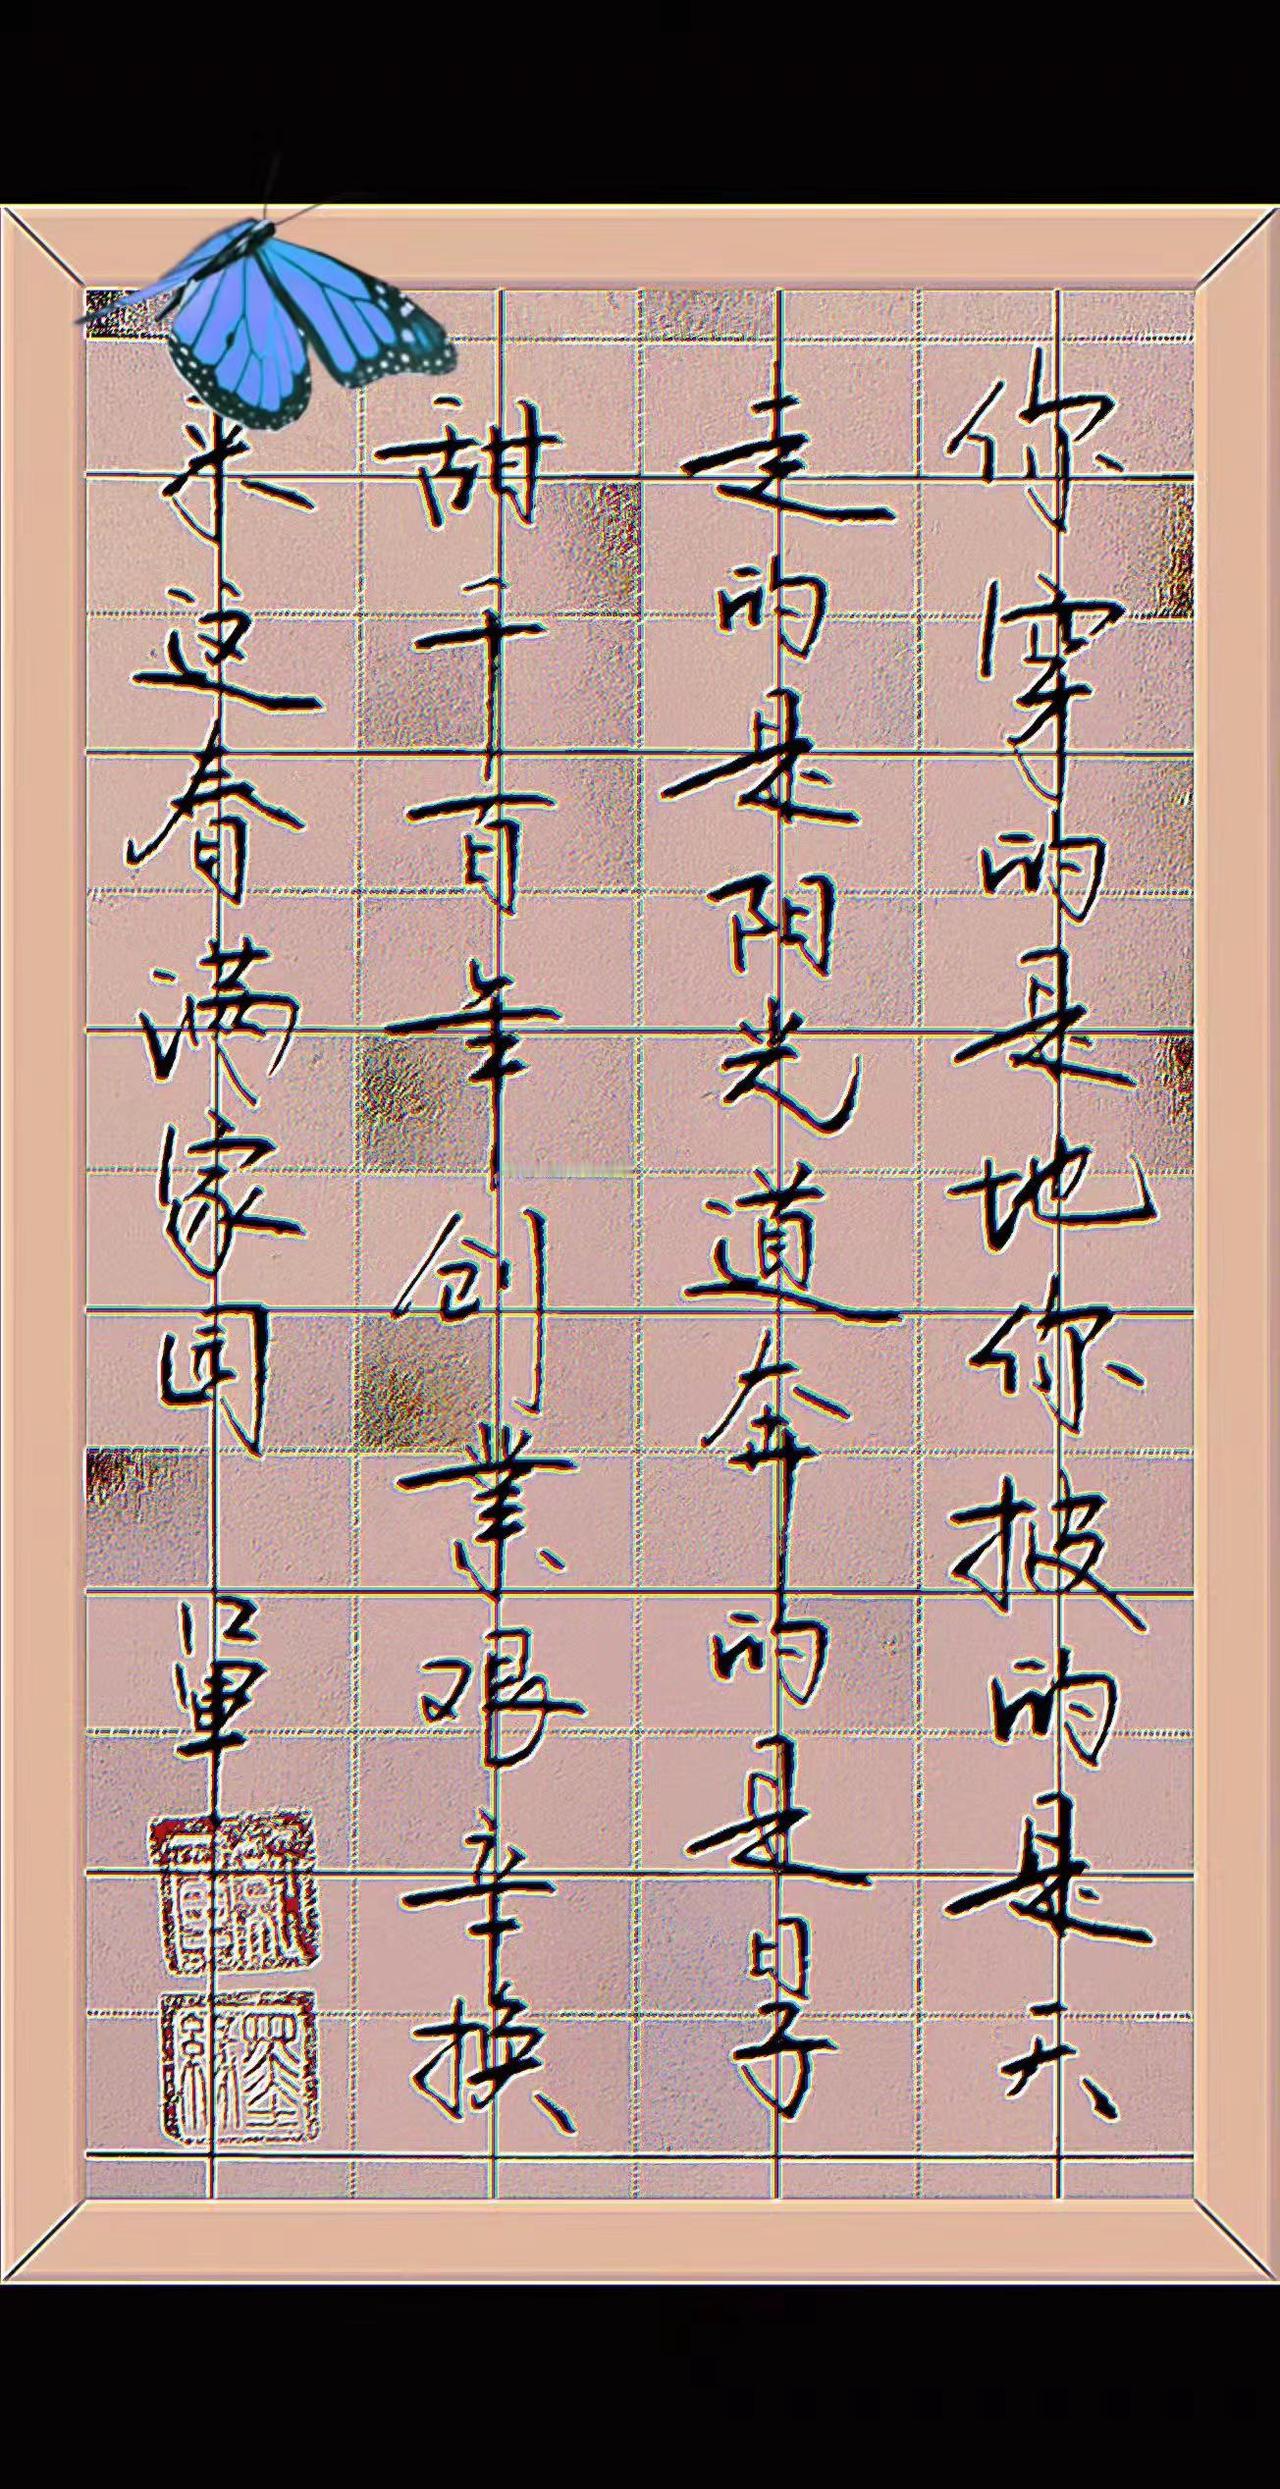 你穿的是地你披的是天
走的是阳光道奔的是日子
甜千百年创業艰辛换
来迎春满家园 江軍